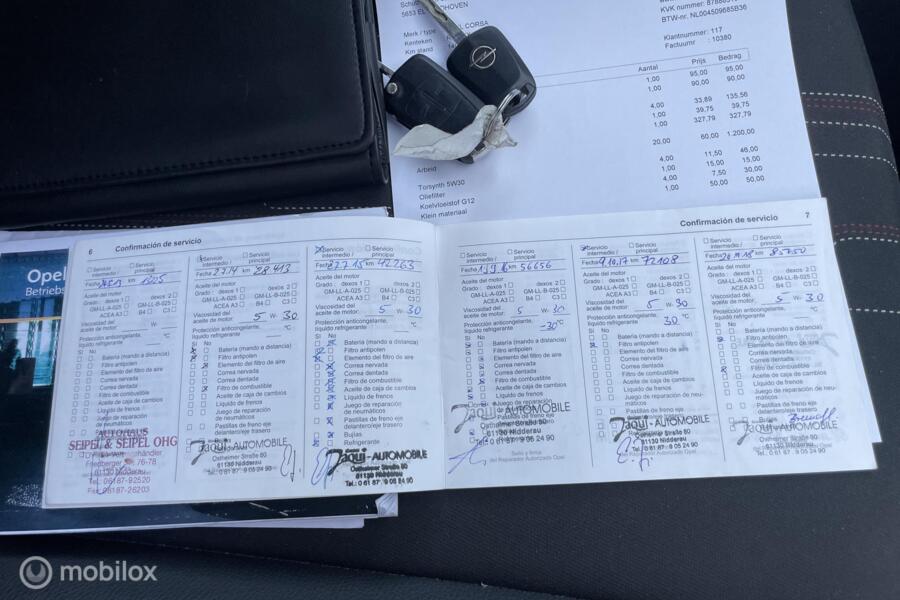 5653 EL
KVK nummer:
BTW-nr. NL004509685B36
Merk / type
CORSA
Kenteken
Km stand
Klantnummer: 117
Factuurnr : 10380
Aantal Prijs Bedrag
1,00 95,00 95,00
1,00 90,00 90,00
4,00 33,89 135,56
1,00 39,75 39,75
1,00 327,79 327,79
20,00 60,00 1.200,00
Arbeid
4,00 11,50 46,00
1,00 15,00 15,00
4,00 7,50 30,00
1,00 50,00 50,00
Torsynth 5W30
Oliefilter
Koelvloeistof G12
Klein materiaal
Opel
Betriebs
6 Confirmación de servicio
Servicio intermedio / Servicio principal
Fecha km
Aceite del motor
Grado: dexos 1 dexos 2
GM-LL-A-025 GM-LL-B-025
ACEA A3 B4 C3
Viscosidad del
aceite de motor: W-
Protección anticongelante,
líquido refrigerante °C
Si No
Batería (mando a distancia)
Filtro antipolen
Elemento del filtro de aire
Correa nervada
Correa dentada
Filtro de combustible
Aceite de caja de cambios
Líquido de frenos
Juego de reparación
de neumáticos
AUTOHAUS
SEIPEL & SEIPEL OHG
Friedberger 76-78
61130 Nidderau
Tel. 06187-92520
Fax 06187-26203
Servicio intermedio / Servicio principal
Fecha km 28413
Aceite del motor
Grado: dexos 1 dexos 2
GM-LL-A-025 GM-LL-B-025
ACEA A3 B4 C3
Viscosidad del
aceite de motor: 5 W- 30
Protección anticongelante,
líquido refrigerante °C
Si No
Batería (mando a distancia)
Filtro antipolen
Elemento del filtro de aire
Correa nervada
Correa dentada
Filtro de combustible
Aceite de caja de cambios
Líquido de frenos
Juego de reparación
de neumáticos
Pastillas de freno eje
delantero/eje trasero
Jaqui-AUTOMOBILE
Ostheimer Straße 80
61130 Nidderau
Tel.: 0 61 87 / 9 05 24 90
Servicio intermedio / Servicio principal
Fecha km 42263
Aceite del motor
Grado: dexos 1 dexos 2
GM-LL-A-025 GM-LL-B-025
ACEA A3 B4 C3
Viscosidad del
aceite de motor: 5 W- 30
Protección anticongelante,
líquido refrigerante °C
Si No
Batería (mando a distancia)
Filtro antipolen
Elemento del filtro de aire
Correa nervada
Correa dentada
Filtro de combustible
Aceite de caja de cambios
Líquido de frenos
Juego de reparación
de neumáticos
Pastillas de freno eje
delantero/eje trasero
Bujías
Refrigerante
Jaqui-AUTOMOBILE
Ostheimer Straße 80
61130 Nidderau
Tel.: 0 61 87 / 9 05 24 90
Confirmación de servicio 7
Servicio intermedio / Servicio principal
Fecha km 56656
Aceite del motor
Grado: dexos 1 dexos 2
GM-LL-A-025 GM-LL-B-025
ACEA A3 B4 C3
Viscosidad del
aceite de motor: 5 W- 30
Protección anticongelante,
líquido refrigerante -30 °C
Si No
Batería (mando a distancia)
Filtro antipolen
Elemento del filtro de aire
Correa nervada
Correa dentada
Filtro de combustible
Aceite de caja de cambios
Líquido de frenos
Juego de reparación
de neumáticos
Jaqui-AUTOMOBILE
Ostheimer Straße 80
61130 Nidderau
Tel.: 0 61 87 / 9 05 24 90
Sello y firma
del Reparador Autorizado Opel
Servicio intermedio / Servicio principal
Fecha 9.10.17 km 72108
Aceite del motor
Grado: dexos 1 dexos 2
GM-LL-A-025 GM-LL-B-025
ACEA A3 B4 C3
Viscosidad del
aceite de motor: 5 W- 30
Protección anticongelante,
líquido refrigerante 30 °C
Si No
Batería (mando a distancia)
Filtro antipolen
Elemento del filtro de aire
Correa nervada
Correa dentada
Filtro de combustible
Aceite de caja de cambios
Líquido de frenos
Juego de reparación
de neumáticos
Pastillas de freno eje
delantero/eje trasero
Jaqui-AUTOMOBILE
Ostheimer Straße 80
61130 Nidderau
Tel.: 0 61 87 / 9 05 24 90
del Reparador Autorizado Opel
Servicio intermedio / Servicio principal
Fecha km 85750
Aceite del motor
Grado: dexos 1 dexos 2
GM-LL-A-025 GM-LL-B-025
ACEA A3 B4 C3
Viscosidad del
aceite de motor: 5 W- 30
Protección anticongelante,
líquido refrigerante °C
Si No
Batería (mando a distancia)
Filtro antipolen
Elemento del filtro de aire
Correa nervada
Correa dentada
Filtro de combustible
Aceite de caja de cambios
Líquido de frenos
Juego de reparación de neu-
máticos
Pastillas de freno eje
delantero/eje trasero
Bujías
Jaqui-AUTOMOBILE
Ostheimer Straße 80
61130 Nidderau
Tel.: 0 61 87 / 9 05 24 90
mobilox